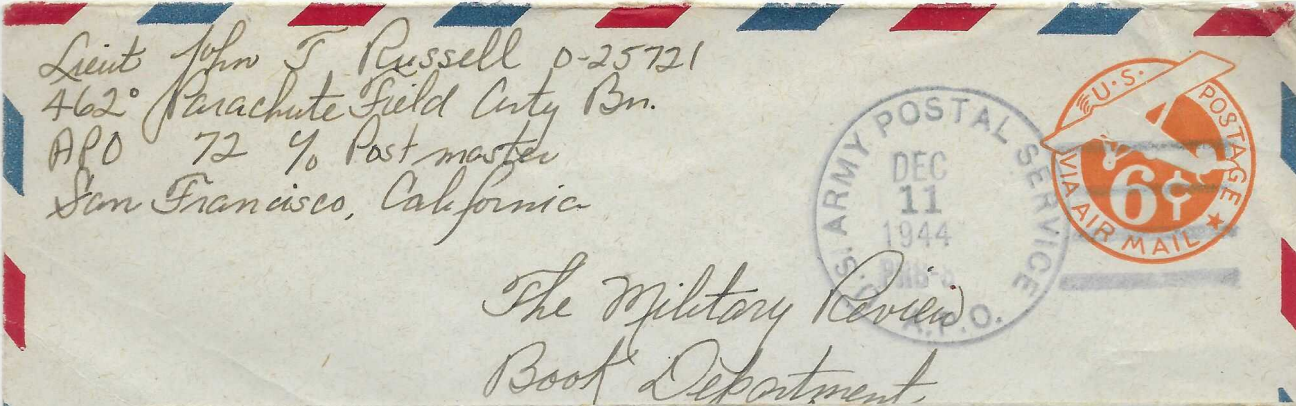 Lieut John T Russell O-25721
462° Parachute Field Arty Bn.
APO 72 c/o Postmaster
San Francisco, California
U.S. ARMY POSTAL SERVICE
DEC
11
1944
A.P.O.
U.S. POSTAGE
6¢
VIA AIR MAIL
The Military Review
Book Department,